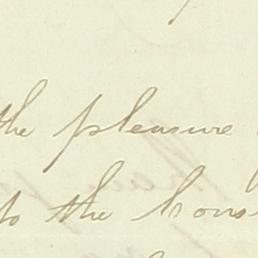 the pleasure
to the